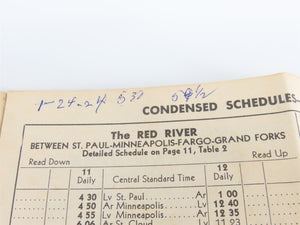 CONDENSED SCHEDULES
The RED RIVER
BETWEEN ST. PAUL-MINNEAPOLIS-FARGO-GRAND FORKS
Detailed Schedule on Page 11, Table 2
Read Down Read Up
11 Daily Central Standard Time 12 Daily
4 30 Lv St. Paul Ar 1 00
4 50 Ar Minneapolis Lv 12 40
4 55 Lv Minneapolis Ar 12 35
6 06 Ar St. Cloud Lv 11 23